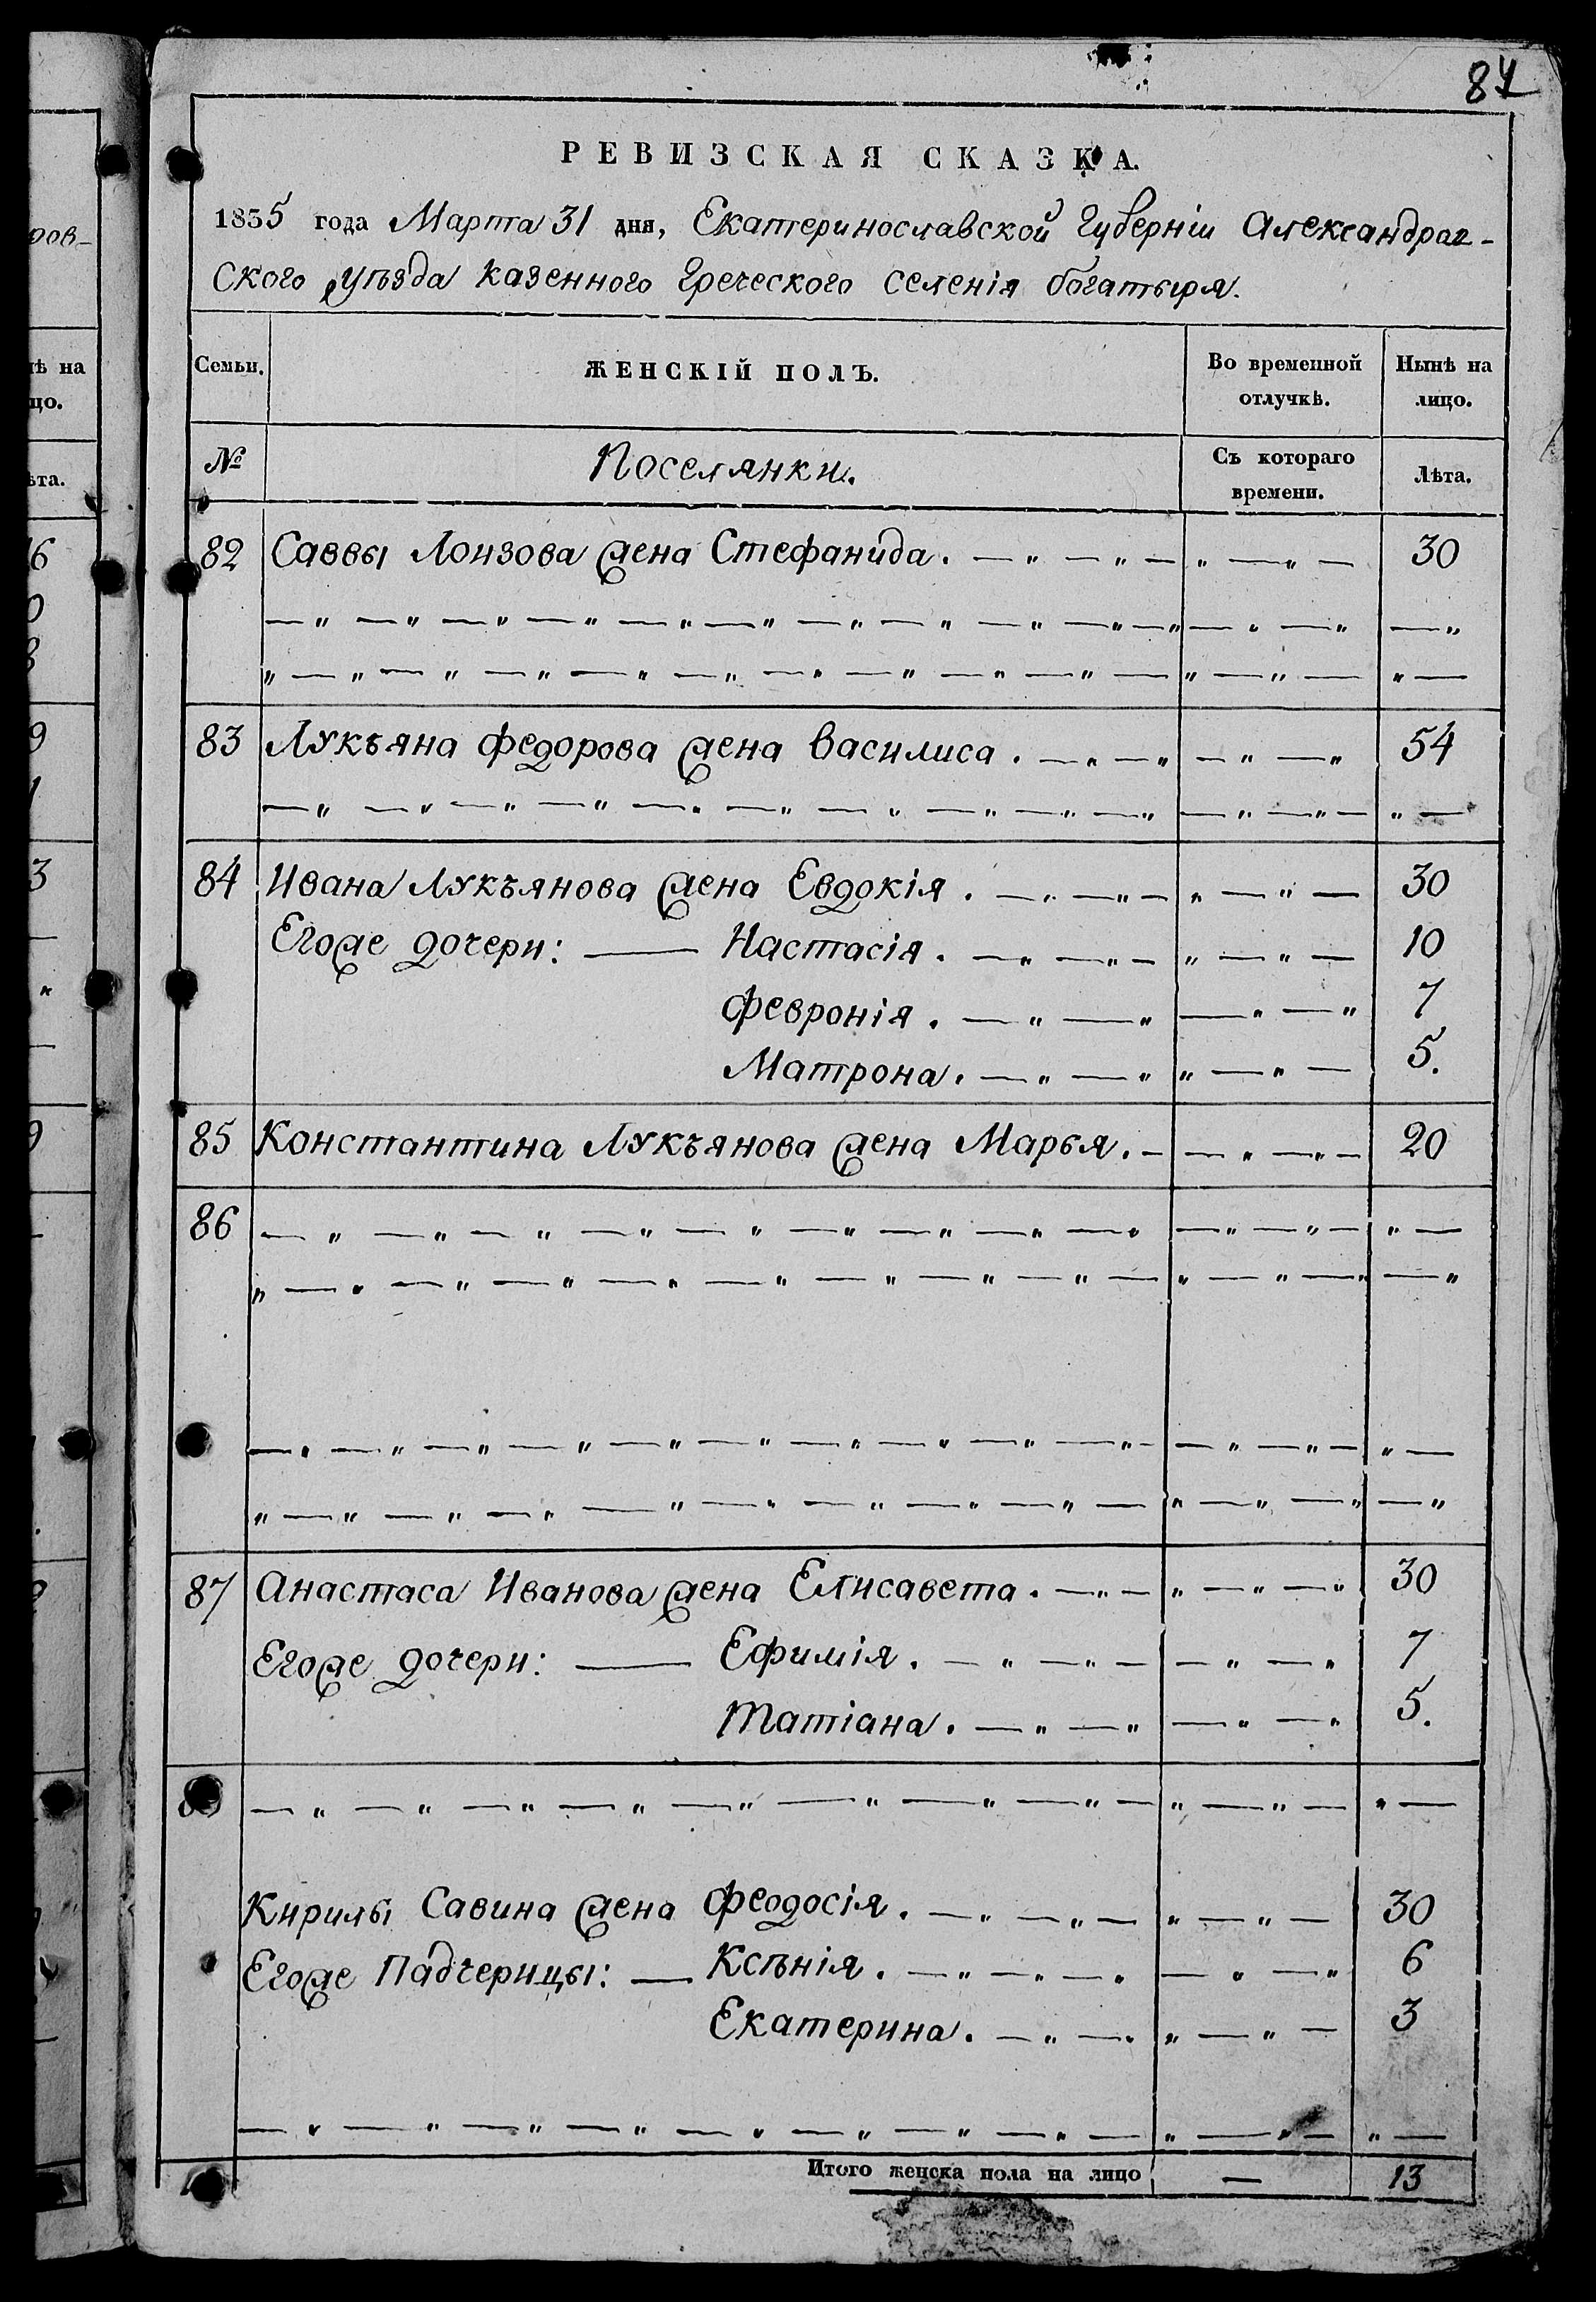 84
РЕВИЗСКАЯ СКАЗКА.
1835 года Марта 31 дня, Екатеринославской Губерніи Александров-
ского уѣзда казенного Греческого селенія богатыря.
Семьи. ЖЕНСКІЙ ПОЛЪ. Во временной отлучкѣ. Нынѣ на лицо.
№ Поселянки. Съ котораго времени. Лѣта.
82 Саввы Лоизова жена Стефанида. 30
83 Лукъяна Федорова жена Василиса. 54
84 Ивана Лукъянова жена Евдокія. 30
Егоже дочери: Настасія. 10
Февронія. 7
Матрона. 5.
85 Константина Лукъянова жена Марья. 20
86
87 Анастаса Иванова жена Елисавета. 30
Егоже дочери: Ефимія. 7
Татіана. 5.
Кирилы Савина жена Феодосія. 30
Егоже Падчерицы: Ксѣнія. 6
Екатерина. 3
Итого женска пола на лицо — 13